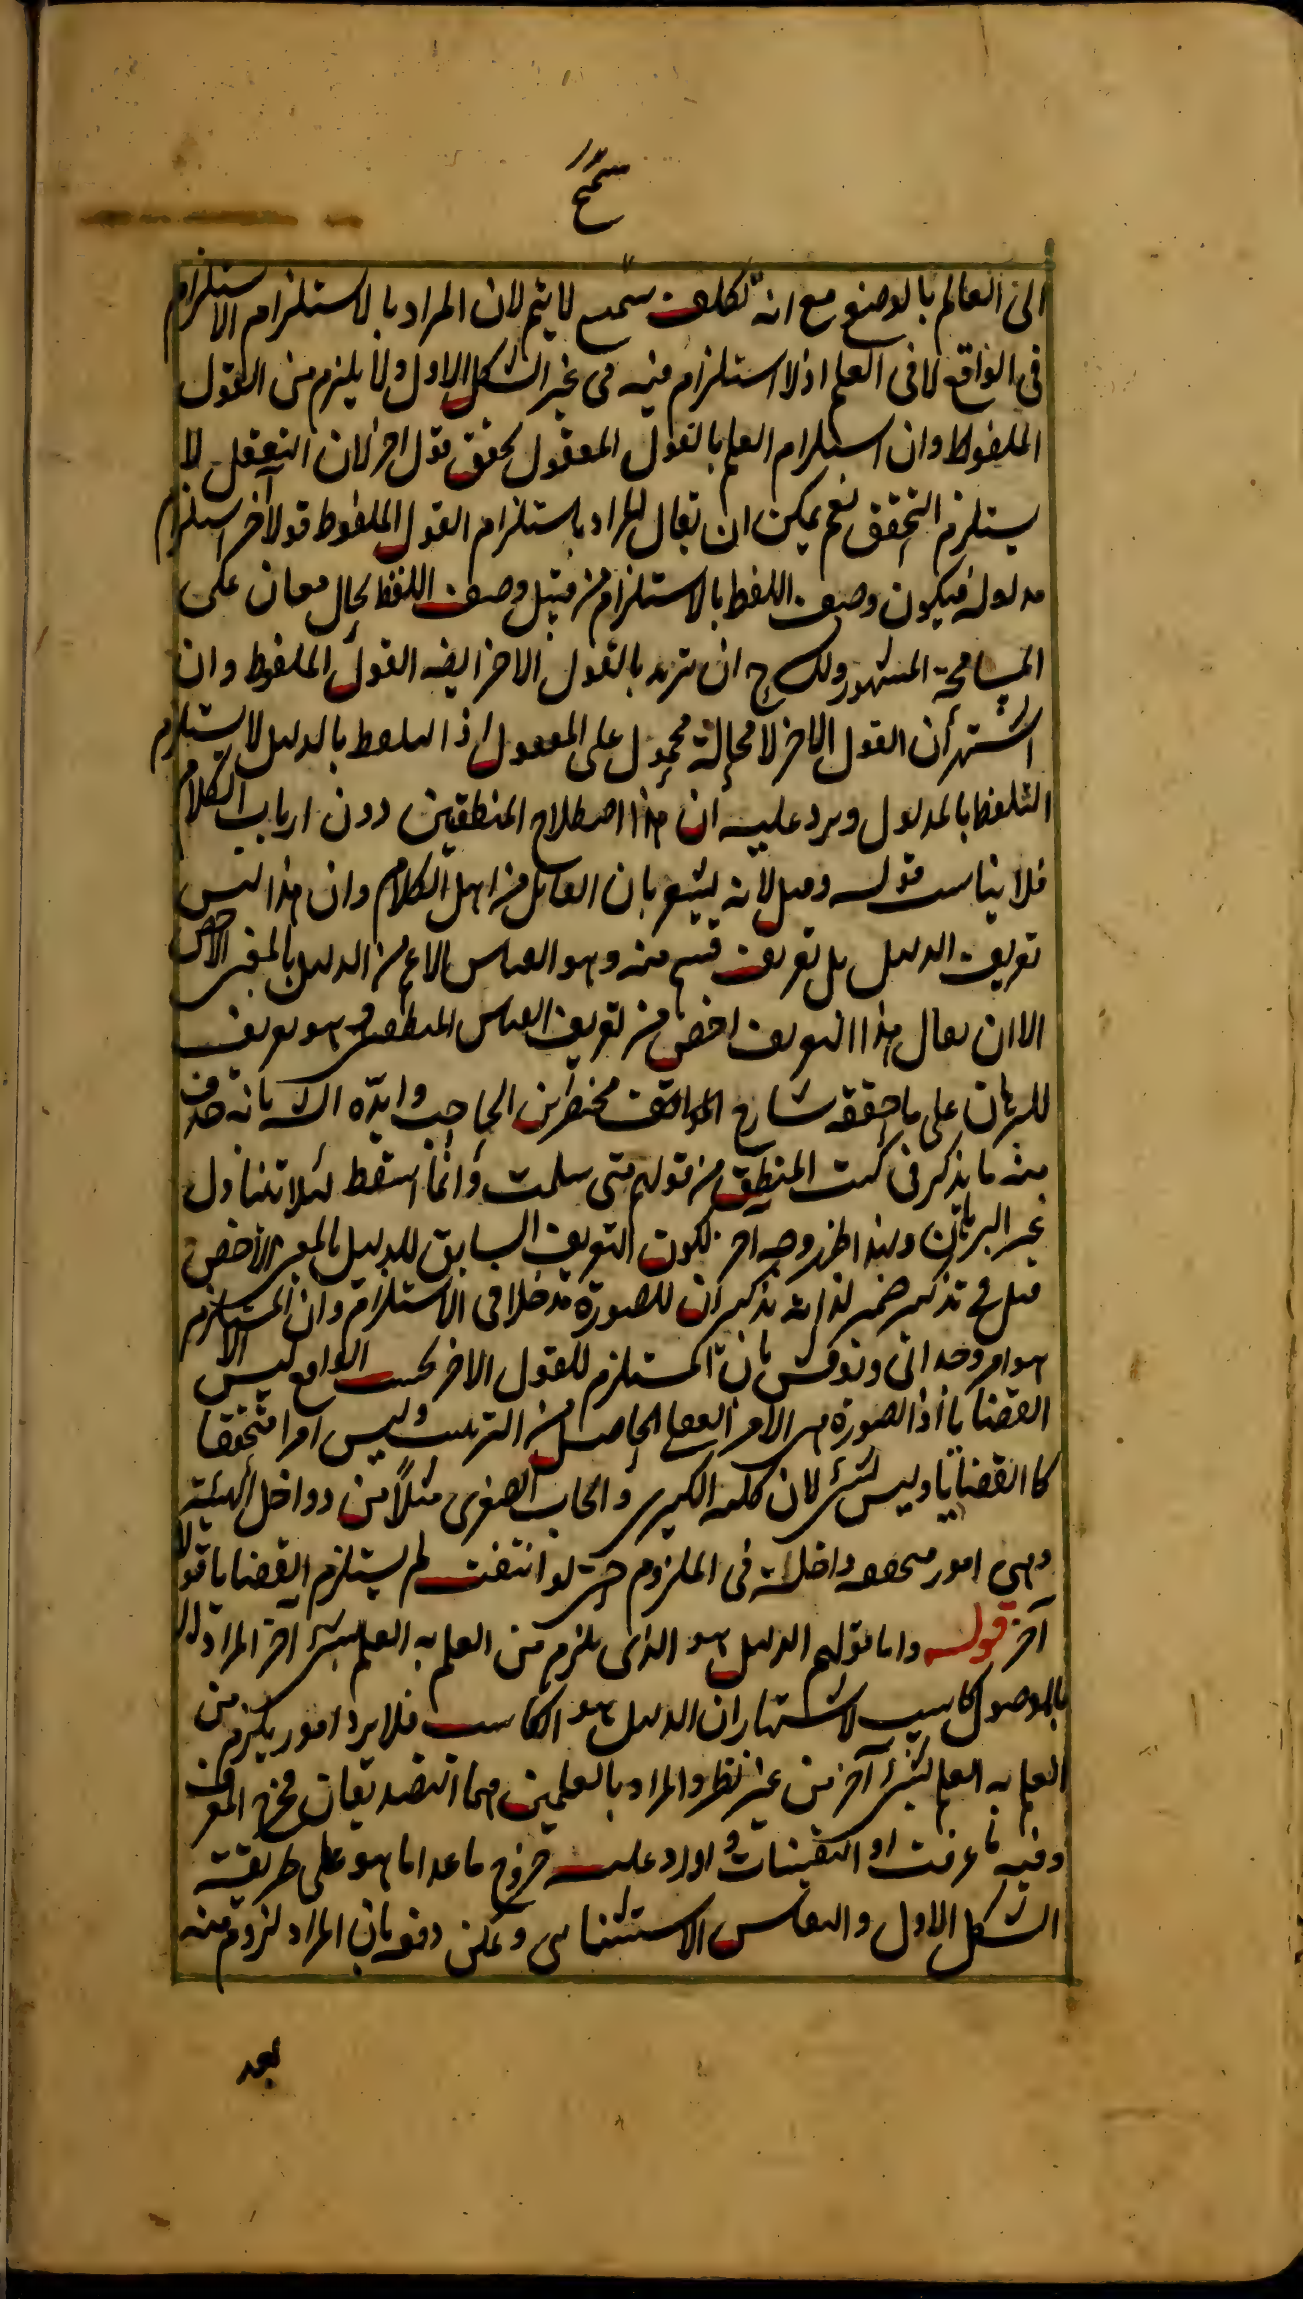 سمج
الى العالم بالوضع مع انه تكلف سمج لا يتم لان المراد بالاستلزام الاستلزام
فى الواقع لا فى العلم اذ لا استلزام فيه فى غير الشكل الاول ولا يلزم من القول
الملفوظ وان استلزم العلم بالقول المعقول تحقق قول اخر لان التعقل لا
يستلزم التحقق نعم يمكن ان يقال المراد باستلزام القول الملفوظ قولا آخر استلزام
مدلوله فيكون وصف اللفظ بالاستلزام من قبيل وصف اللفظ بحال معان على
المسامحة المشهور ولك ح ان تريد بالقول الاخر ايضه القول الملفوظ وان
اشتهر أن القول الاخر لا محالة محمول على المعقول اذ التلفظ بالدليل لا يستلزم
التلفظ بالمدلول ويرد عليه ان هذا اصطلاح المنطقين دون ارباب الكلام
فلا يناسب قوله وقيل لانه يشعر بان القائل من اهل الكلام وان هذا ليس
تعريف الدليل بل تعريف قسم منه وهو القياس الاعم من الدليل بالمعنى الاخص
الا ان يقال هذا التعريف اخص من تعريف القياس المنطقى هو تعريف
للبرهان على ما حققه شارح المواقف مختصر ابن الحاجب وايّده الش بانه حذف
منه ما يذكر فى كتب المنطق من قولهم متى سلمت وانما اسقط لئلا يتناول
غير البرهان ولهذا اظهر وجه آخر لكون التعريف السابق للدليل بالمعنى الأخص
قيل فى تذكير ضمير لذاته تذكير أن للصورة مدخلا فى الاستلزام وان المستلزم
هو امر وحدانى ونوقش بان المستلزم للقول الاخر بحسب الواقع ليس الا
القضايا اذ الصورة هى الامر العقلى الحاصل من الترتيب وليس امرا متحققا
كالقضايا وليس بشئ لان كلية الكبرى وايجاب الصغرى مثلاً من دواخل الهيئة
وهى امور متحققه داخلة فى الملزوم حتى لو انتفت لم يستلزم القضايا قولا
آخر قوله واما قولهم الدليل هو الذى يلزم من العلم به العلم بشئ آخر المراد
بالموصول كاسب لاشتهار ان الدليل هو الكاسب فلا يرد امور يلزم من
العلم به العلم بشئ آخر من غير نظر والمراد بالعلمين هما التصديقان فخرج المعرف
وفيه ما عرفت او اليقينيات واورد عليه خروج ما عدا ما هو على طريقة
الشكل الاول والقياس الاستثنائى ويمكن دفعه بان المراد لزومه منه
بعد